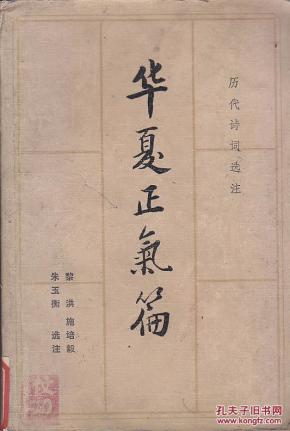 历代诗词选注
华夏正氣篇
黎洪 施培毅
朱玉衡 选注
孔夫子旧书网